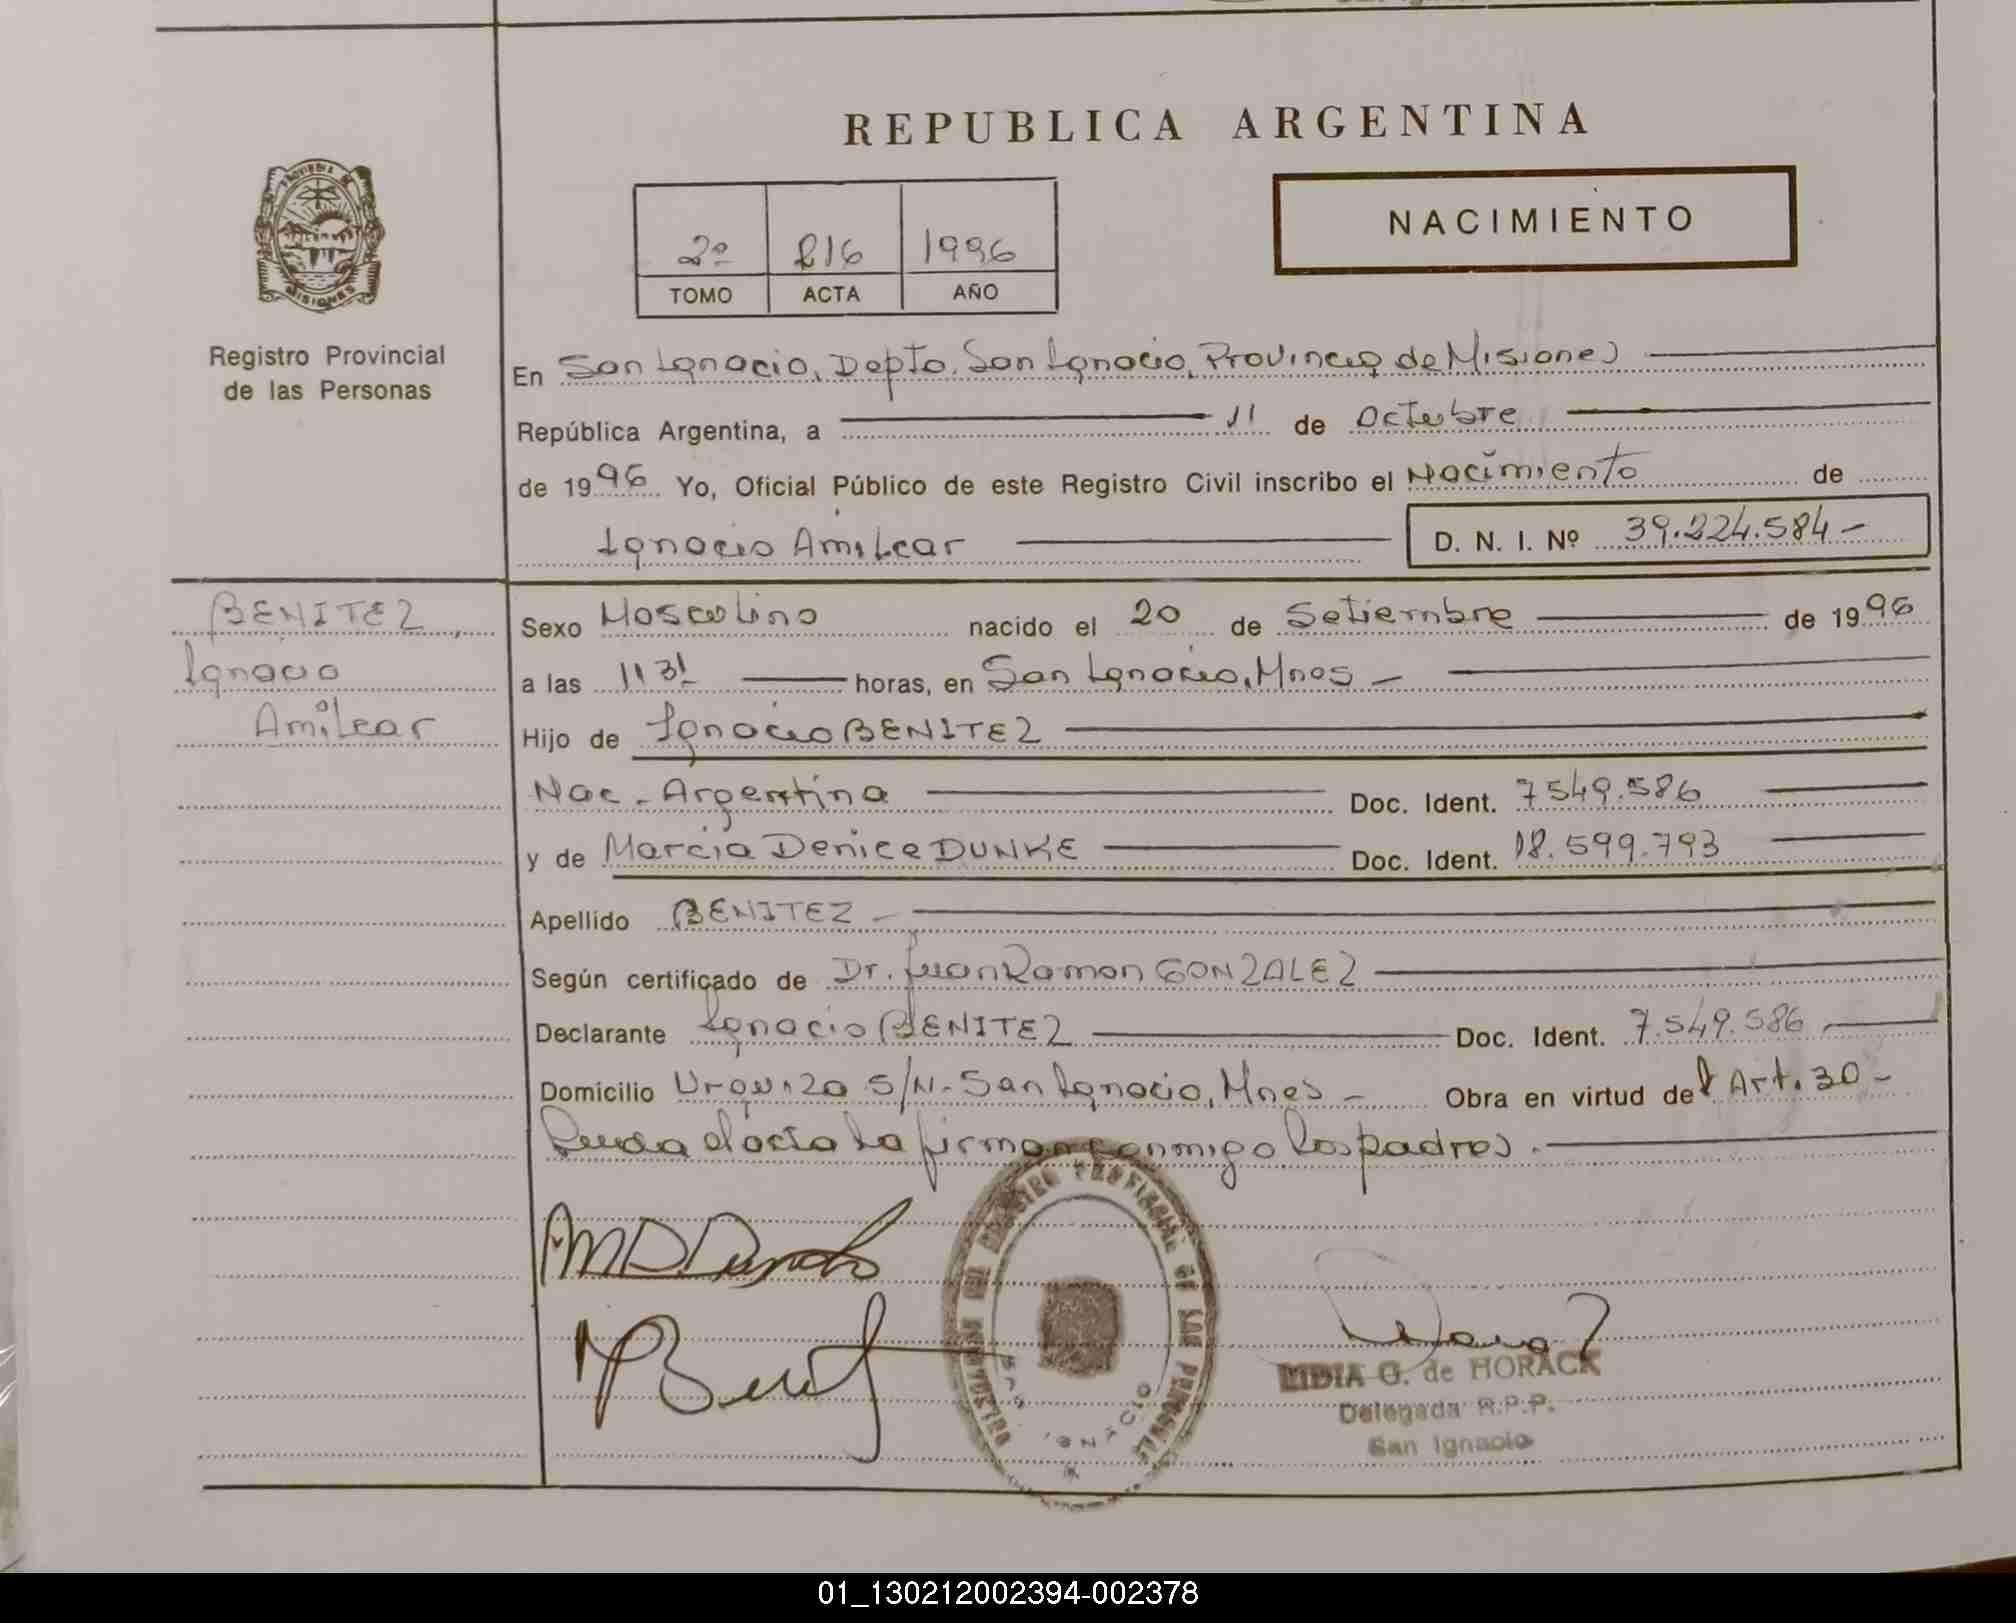 REPUBLICA ARGENTINA
NACIMIENTO
2º 216 1996
TOMO ACTA AÑO
PROVINCIA DE
MISIONES
Registro Provincial
de las Personas
En San Ignacio, Depto. San Ignacio, Provincia de Misiones
República Argentina, a 11 de Octubre
de 1996 Yo, Oficial Público de este Registro Civil inscribo el Nacimiento de
Ignacio Amilcar D. N. I. Nº 39.224.584-
BENITEZ,
Ignacio
Amilcar
Sexo Masculino nacido el 20 de Setiembre de 1996
a las 1131 horas, en San Ignacio, Mnes -
Hijo de Ignacio BENITEZ
Nac. Argentina Doc. Ident. 7549.586
y de Marcia Denice DUNKE Doc. Ident. 18.599.793
Apellido BENITEZ -
Según certificado de Dr. Juan Ramon GONZALEZ
Declarante Ignacio BENITEZ Doc. Ident. 7.549.586
Domicilio Urquiza S/N- San Ignacio, Mnes - Obra en virtud del Art. 30 -
Leida el acta la firman conmigo los padres.
REGISTRO PROVINCIAL DE LAS PERSONAS
SAN IGNACIO
LIDIA G. de HORACK
Delegada R.P.P.
San Ignacio
01_130212002394-002378